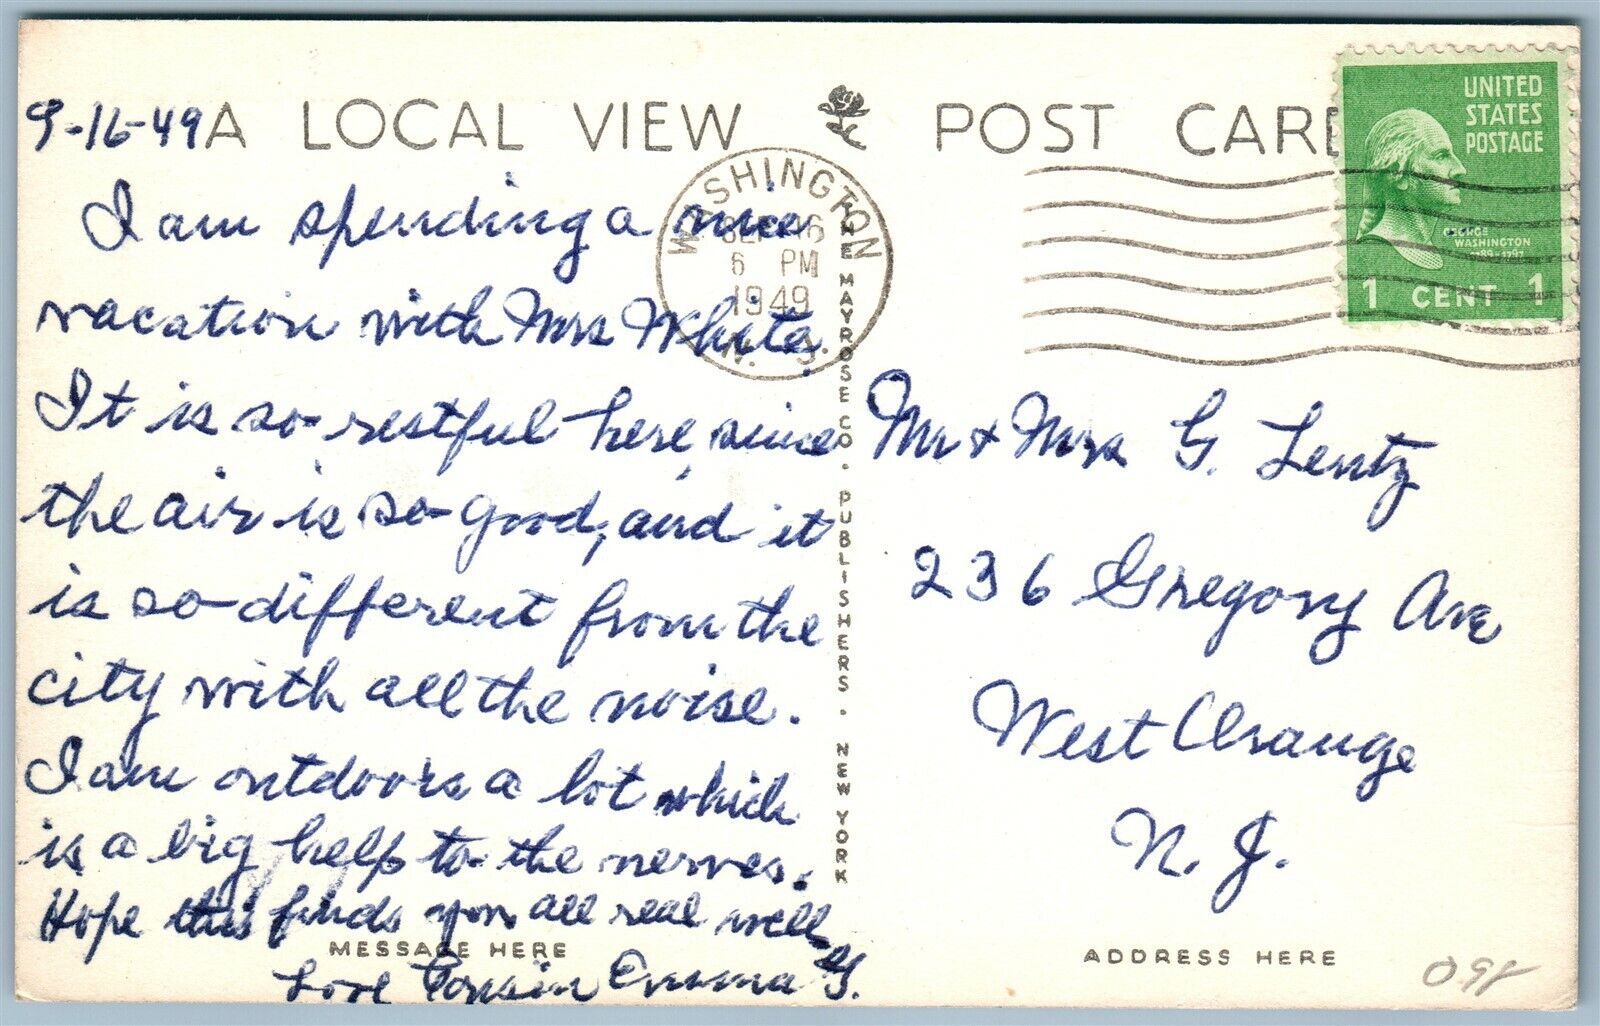 9-16-49
A LOCAL VIEW POST CAR
UNITED
STATES
POSTAGE
GEORGE
WASHINGTON
1 CENT 1
WASHINGTON
SEP 16
6 PM
1949
N. J.
I am spending a nice
vacation with Mrs White.
It is so restful here since
the air is so good, and it
is so different from the
city with all the noise.
I am outdoors a lot which
is a big help to the nerves.
Hope this finds you all real well
Love Cousin Emma G.
MESSAGE HERE
THE MAYROSE CO. PUBLISHERS. NEW YORK
Mr + Mrs G. Lentz
236 Gregory Ave
West Orange
N. J.
ADDRESS HERE